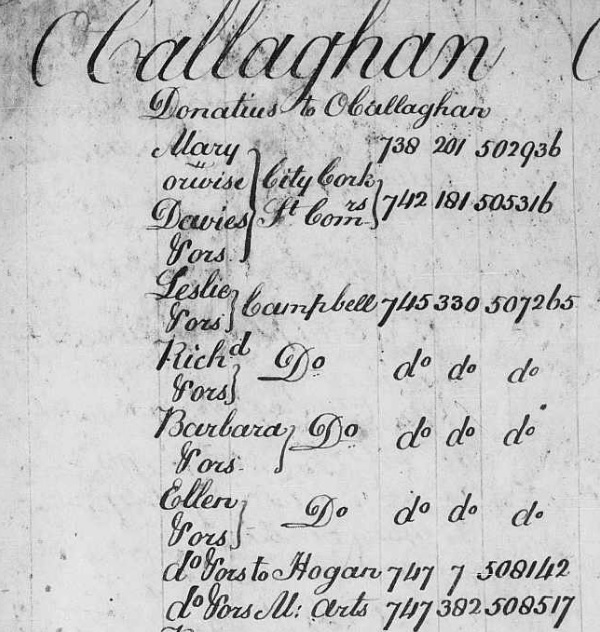 OCallaghan
Donatius to OCallaghan
Mary 738 201 502936
orwise City Cork
Davies St Comrs 742 181 505316
& ors
Leslie
& ors Campbell 745 330 507265
Richd
& ors Do do do do
Barbara Do do do do
& ors
Ellen
& ors Do do do do
do & ors to Hogan 747 7 508142
do & ors M: Arts 747 382 508517